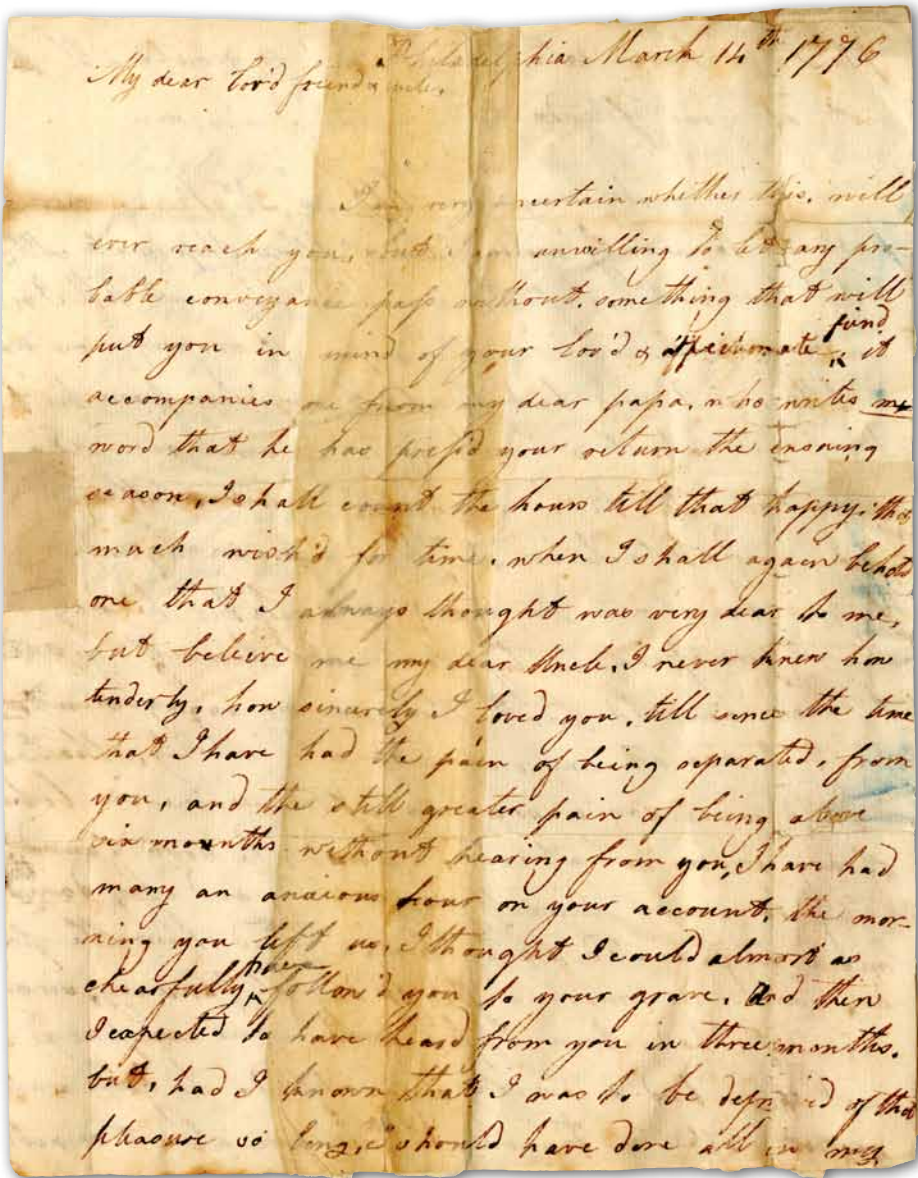 Philadelphia March 14th 1776
My dear lov'd friend & uncle,
I am very uncertain whether this, will
ever reach you, but I am unwilling to let any pro-
bable conveyance pass without. something that will
put you in mind of your lov'd & affectionate fund it
accompanies one from my dear papa, who writes me
word that he has press'd your return the ensuing
season, I shall count the hours till that happy, that
much wish'd for time. when I shall again behold
one that I always thought was very dear to me,
but beleive me my dear Uncle, I never knew how
tenderly, how sincerely I loved you, till since the time
that I have had the pain of being separated, from
you, and the still greater pain of being above
six mounths without hearing from you, I have had
many an anxious hour on your account. the mor-
ning you left us, I thought I could almost as
chearfully have follow'd you to your grave. And then
I expected to have heard from you in three months.
but, had I known that I was to be depriv'd of that
pleasure so long, I should have done all in my